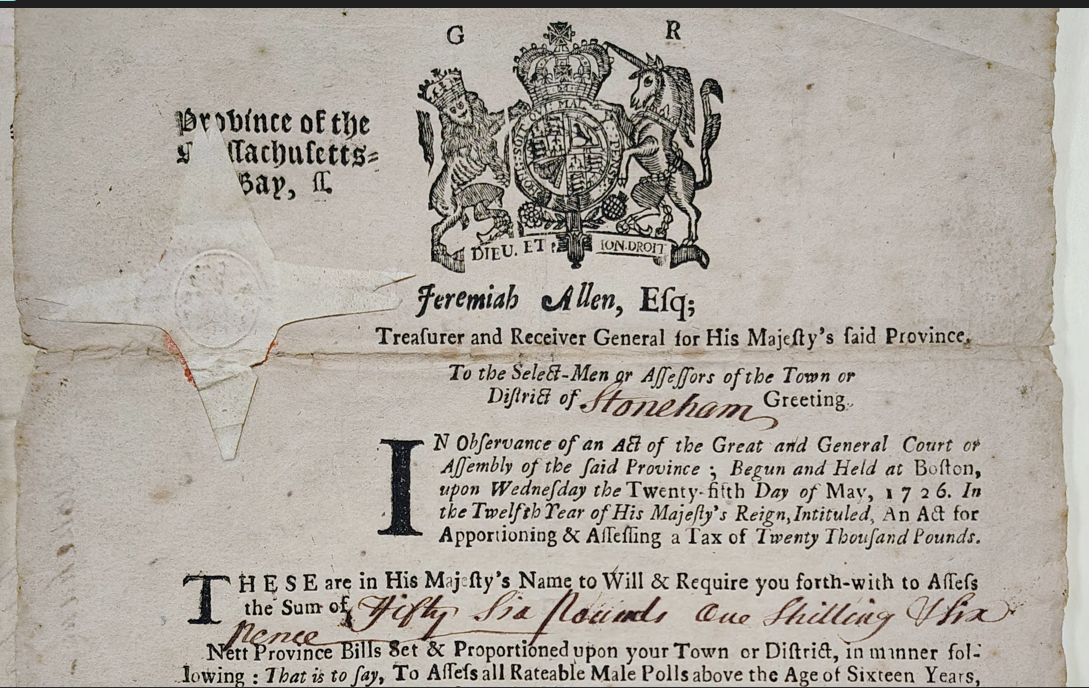 G R
Province of the
ſſachuſetts=
Bay, ſſ.
DIEU. ET ION:DROIT
Jeremiah Allen, Eſq;
Treaſurer and Receiver General for His Majeſty's ſaid Province,
To the Select-Men or Aſſeſſors of the Town or
Diſtrict of Stoneham Greeting.
IN Obſervance of an Act of the Great and General Court or
Aſſembly of the ſaid Province ; Begun and Held at Boſton,
upon Wedneſday the Twenty-fifth Day of May, 1726. In
the Twelfth Year of His Majeſty's Reign, Intituled, An Act for
Apportioning & Aſſeſſing a Tax of Twenty Thouſand Pounds.
THESE are in His Majeſty's Name to Will & Require you forth-with to Aſſeſs
the Sum of Fifty Six Pounds One Shilling & Six
Pence
Nett Province Bills Set & Proportioned upon your Town or Diſtrict, in manner fol-
lowing : That is to ſay, To Aſſeſs all Rateable Male Polls above the Age of Sixteen Years,